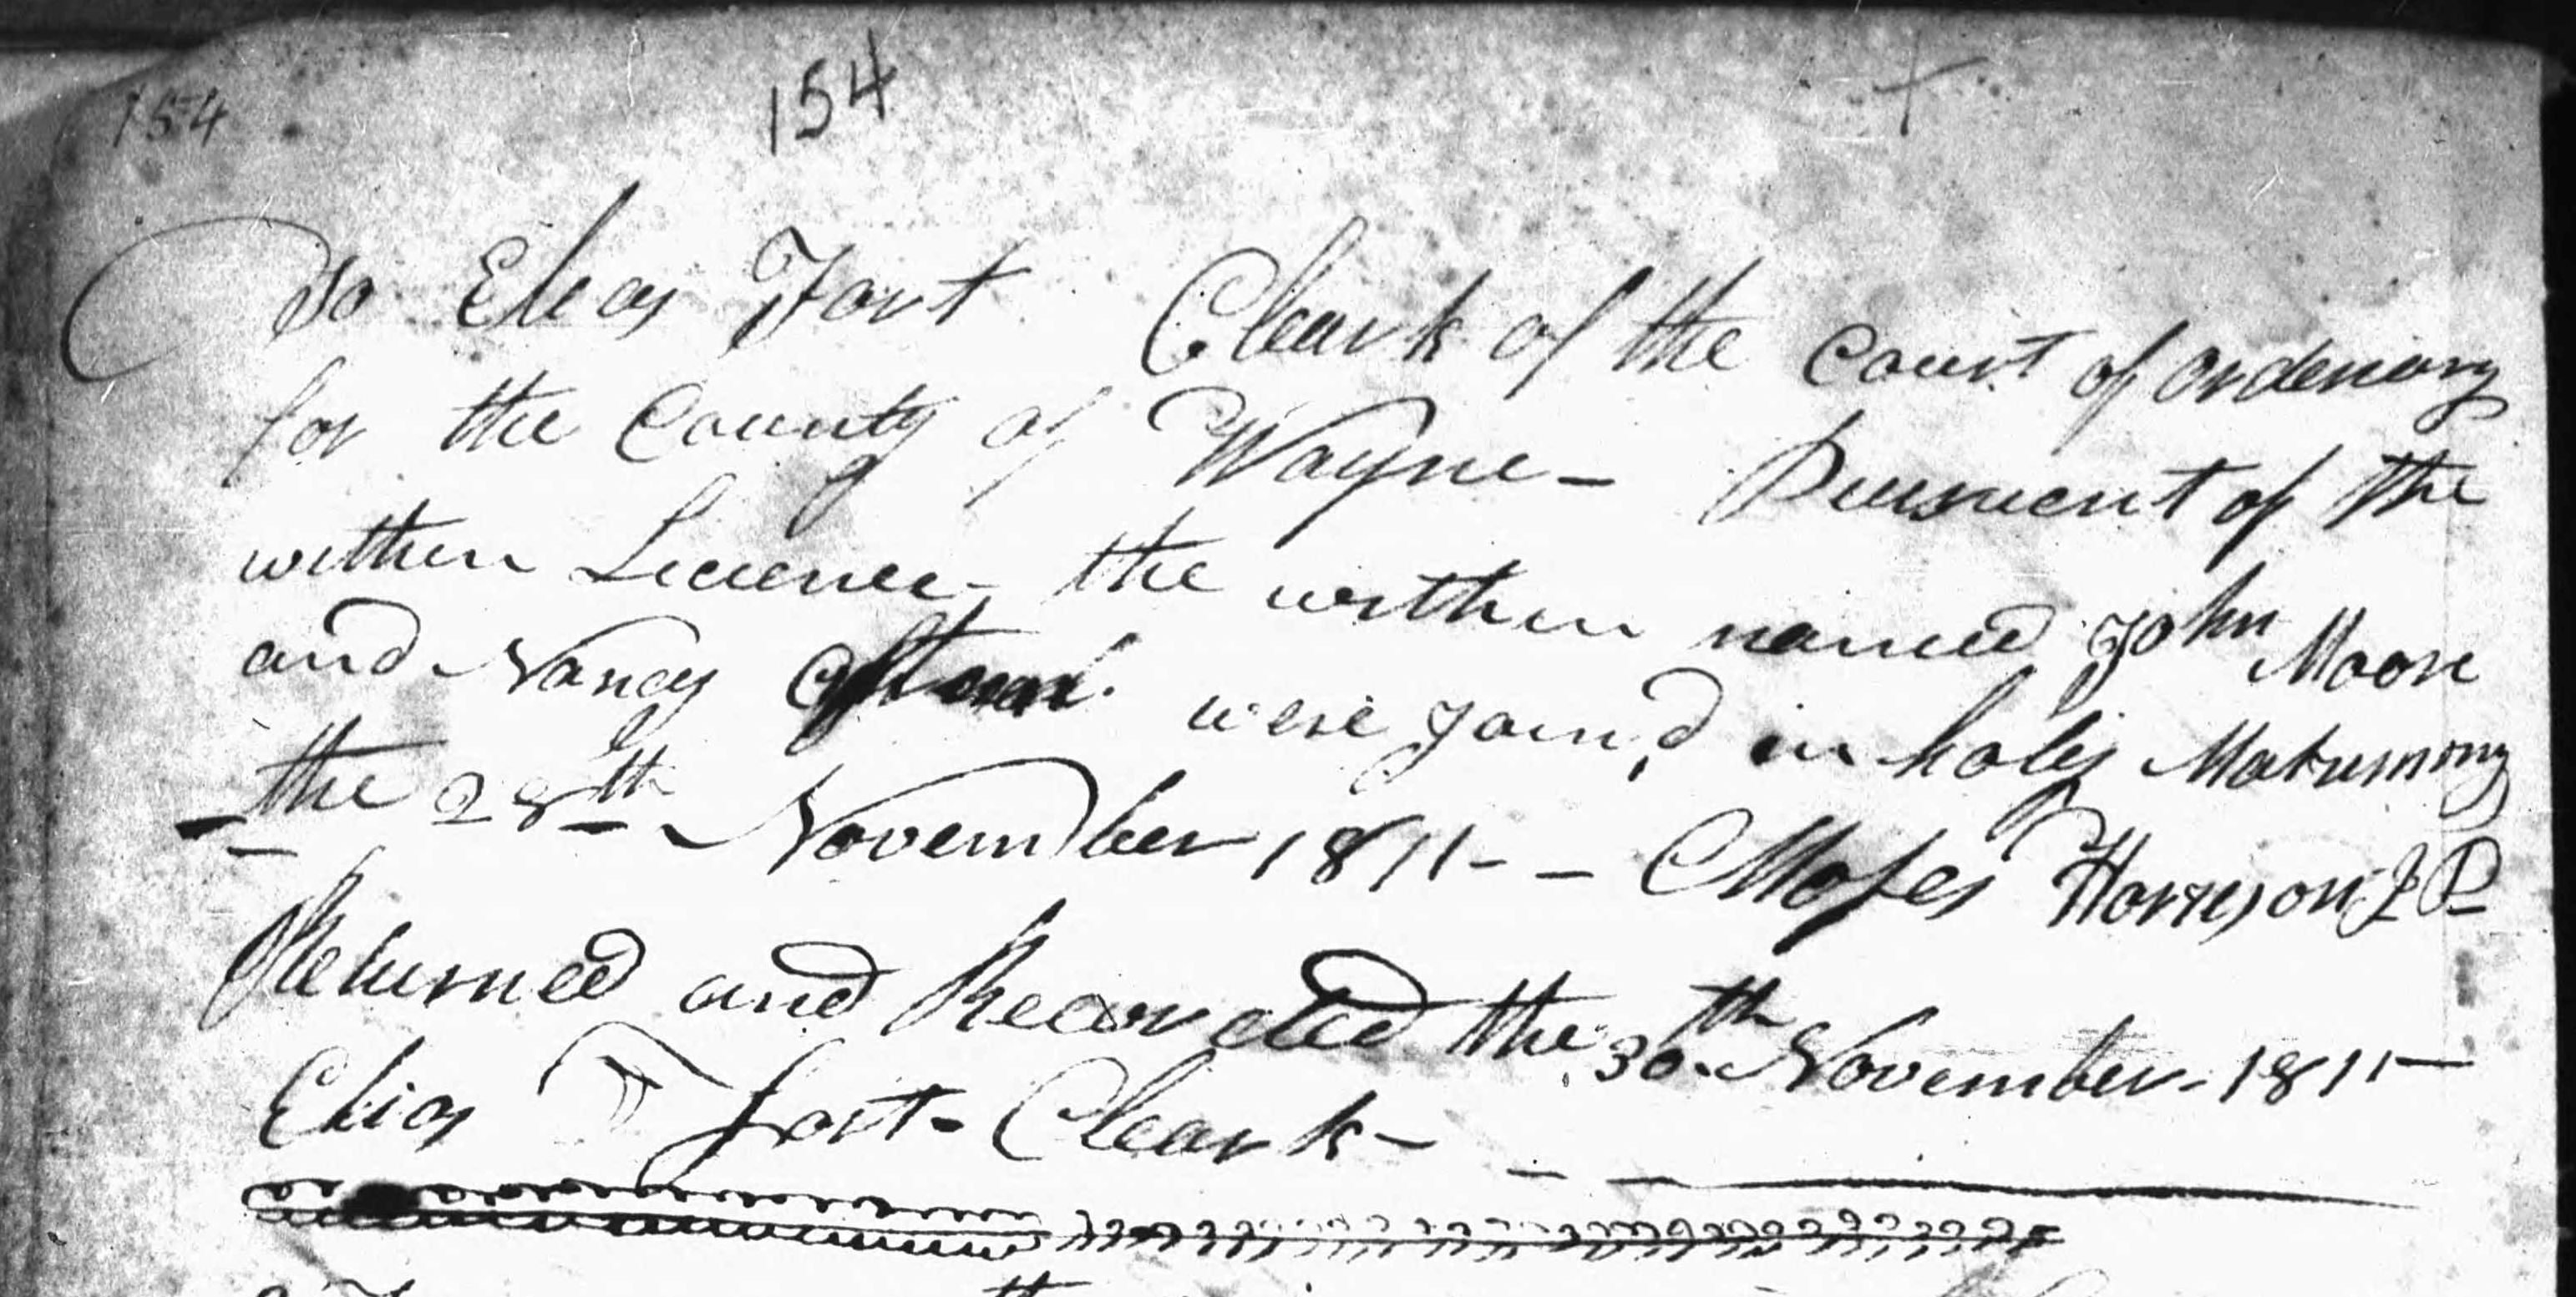 154 154
To Elias Fort Cleark of the Court of ordenary
for the County of Wayne - Pursuent of the
within Licience - the within named John Moore
and Nancy were Join,d in holy Matrimony
the 28th November 1811 - - Moses Harrison J P
Returned and Recorded the 30th November - 1811 -
Elias Fort - Cleark -